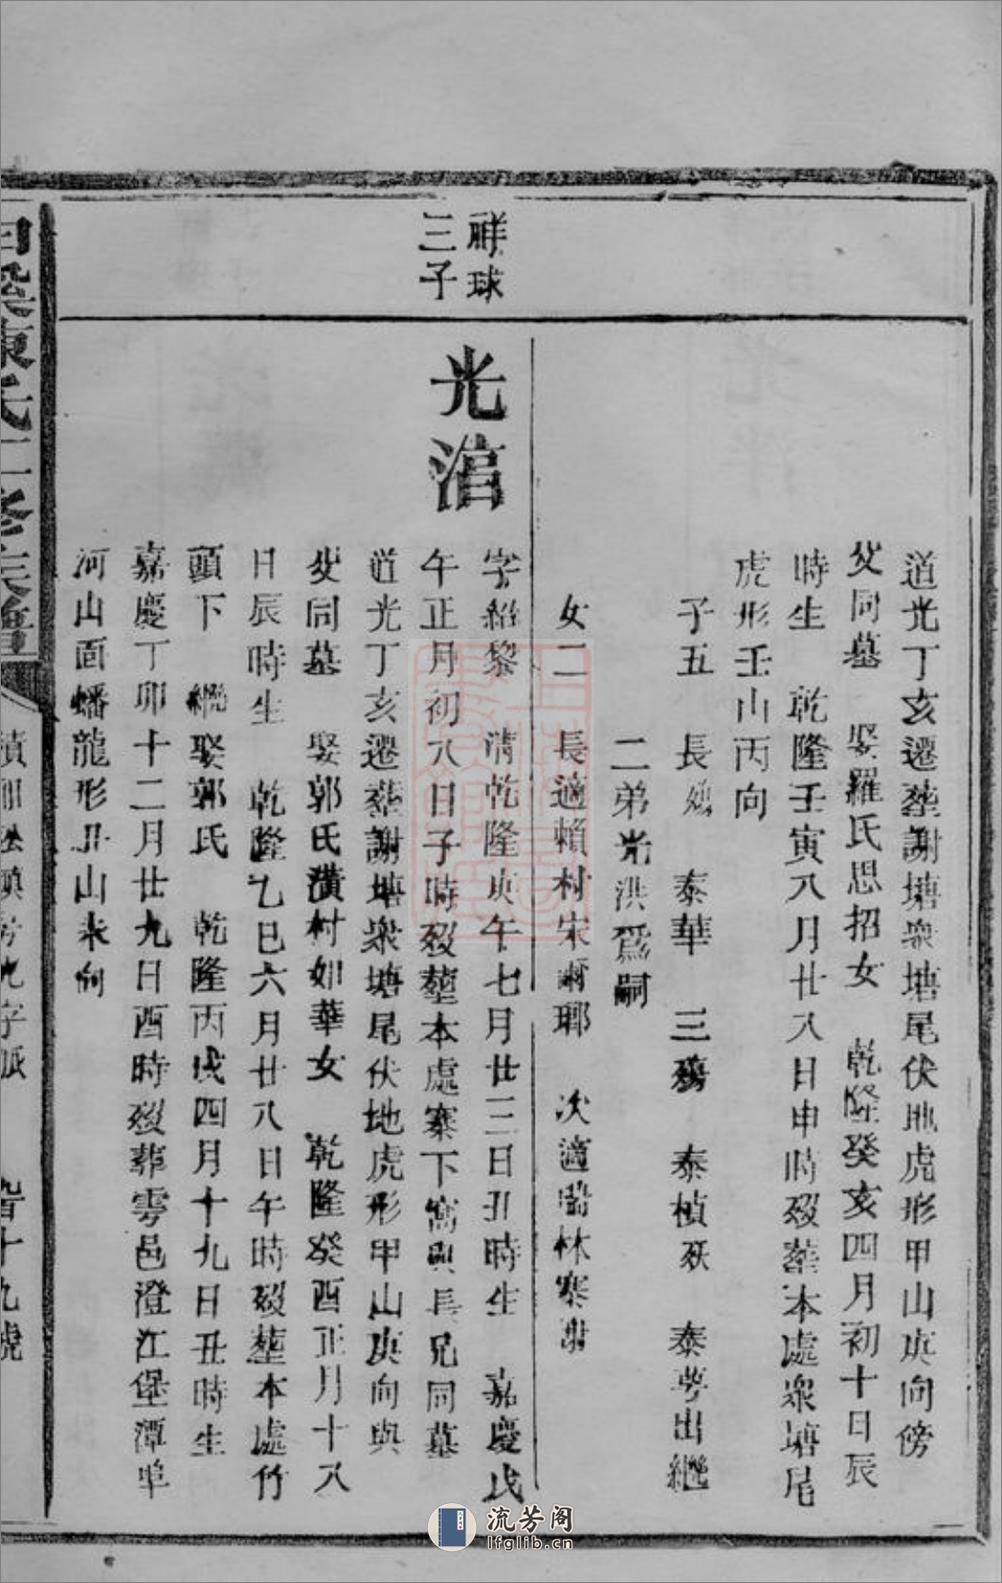 道光丁亥遷塟謝塘眾塘尾伏地虎形甲山庚向傍
父同墓　娶羅氏思招女　乾隆癸亥四月初十日辰
時生　乾隆壬寅八月廿八日申時歿塟本處眾塘尾
虎形壬山丙向
子五　長殤　泰華　三殤　泰楨殀　泰蕚出繼
二弟光洪爲嗣
女二　長適賴村宋爾瑯　次適林寨謝
祥球
三子
光涫
字紹黎　清乾隆庚午七月廿三日丑時生　嘉慶戊
午正月初八日子時歿塟本處寨下窩與長兄同墓
道光丁亥遷塟謝塘眾塘尾伏地虎形甲山庚向與
父同墓　娶郭氏潢村如華女　乾隆癸酉正月十八
日辰時生　乾隆乙巳六月廿八日午時歿塟本處竹
頭下　繼娶郭氏　乾隆丙戌四月十九日丑時生
嘉慶丁卯十二月廿九日酉時歿葬雩邑澄江堡潭埠
河山面蟠龍形丑山未向
氏二修族譜
九字派　十九號
流芳阁
lfglib.cn